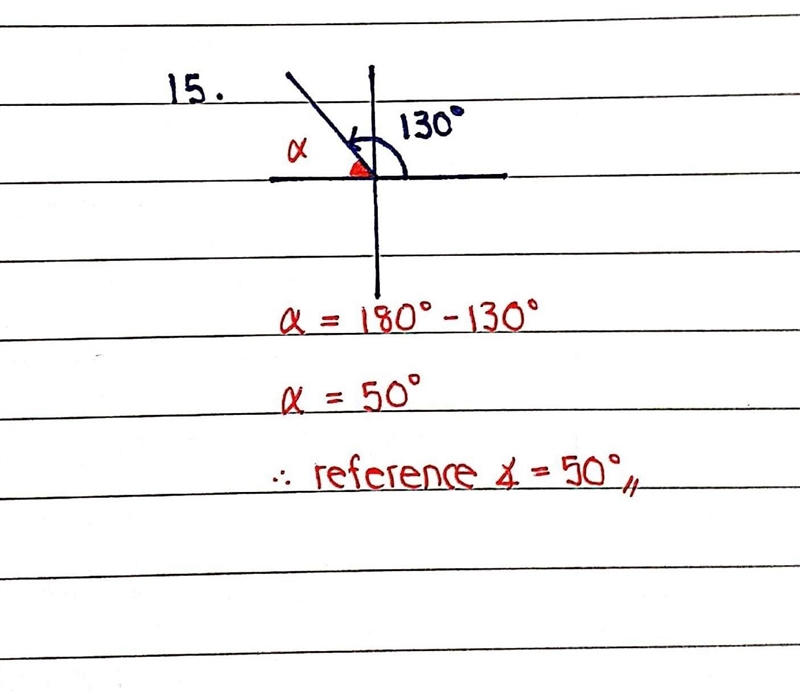 15.
130°
α
α = 180° - 130°
α = 50°
∴ reference ∡ = 50° //